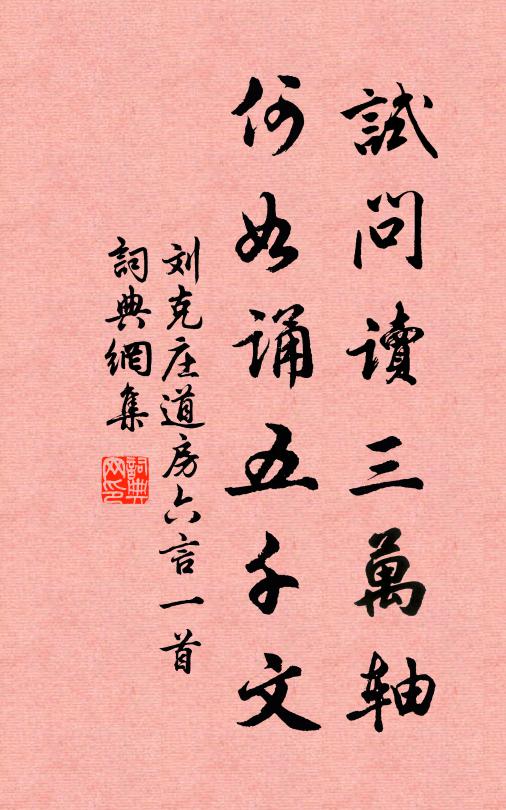 試問讀三萬軸
何如誦五千文
刘克庄道房六言一首
詞典網集
詞典网印